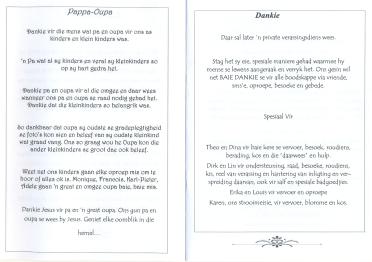 Pappa-Oupa
Dankie vir die mens wat pa en oupa vir ons as
kinders en klein kinders was.
'n Pa wat al sy kinders en veral sy kleinkinders so
op sy hart gedra het.
Dankie pa en oupa vir al die omgee en daar wees
wanneer ons pa en oupa se raad nodig gehad het.
Dankie dat die kleinkinders so belangrik was.
So dankbaar dat oupa sy oudste se gradepligtigheid
se foto's kon sien en beleef van sy oudste kleinkind
wat graad vang. Ons so graag wou hê Oupa kon die
ander kleinkinders se groot dae ook beleef.
Weet net ons kinders gaan elke oproep mis om te
hoor of alles ok is. Monique, Francois, Karl-Pieter,
Adele gaan 'n groot en omgee oupa baie, baie mis.
Dankie Jesus vir pa en 'n great oupa. Ons gun pa en
oupa se wees by Jesus. Geniet elke oomblik in die
hemel....
Dankie
Daar sal later 'n private verassingdiens wees.
Stag het sy eie, spesiale maniere gehad waarmee hy
roerne se lewens aangeraak en verryk het. Ons gesin wil
net BAIE DANKIE se vir alle boodskappe via vriende,
sms'e, oproepe, besoeke en gebede.
Spesiaal Vir
Theo en Dina vir baie kere se vervoer, besoek, roudiens,
berading, kos en die 'daarwees' en hulp.
Dirk en Lin vir ondersteuning, raad, besoeke, roudiens,
kis, reël van verassing en hantering van inligting en ver-
spreiding daarvan, ook vir salf en spesiale badgoedjies.
Erika en Louis vir vervoer en oproepe
Karen, ons strooimeisie, vir vervoer, blomme en kos.